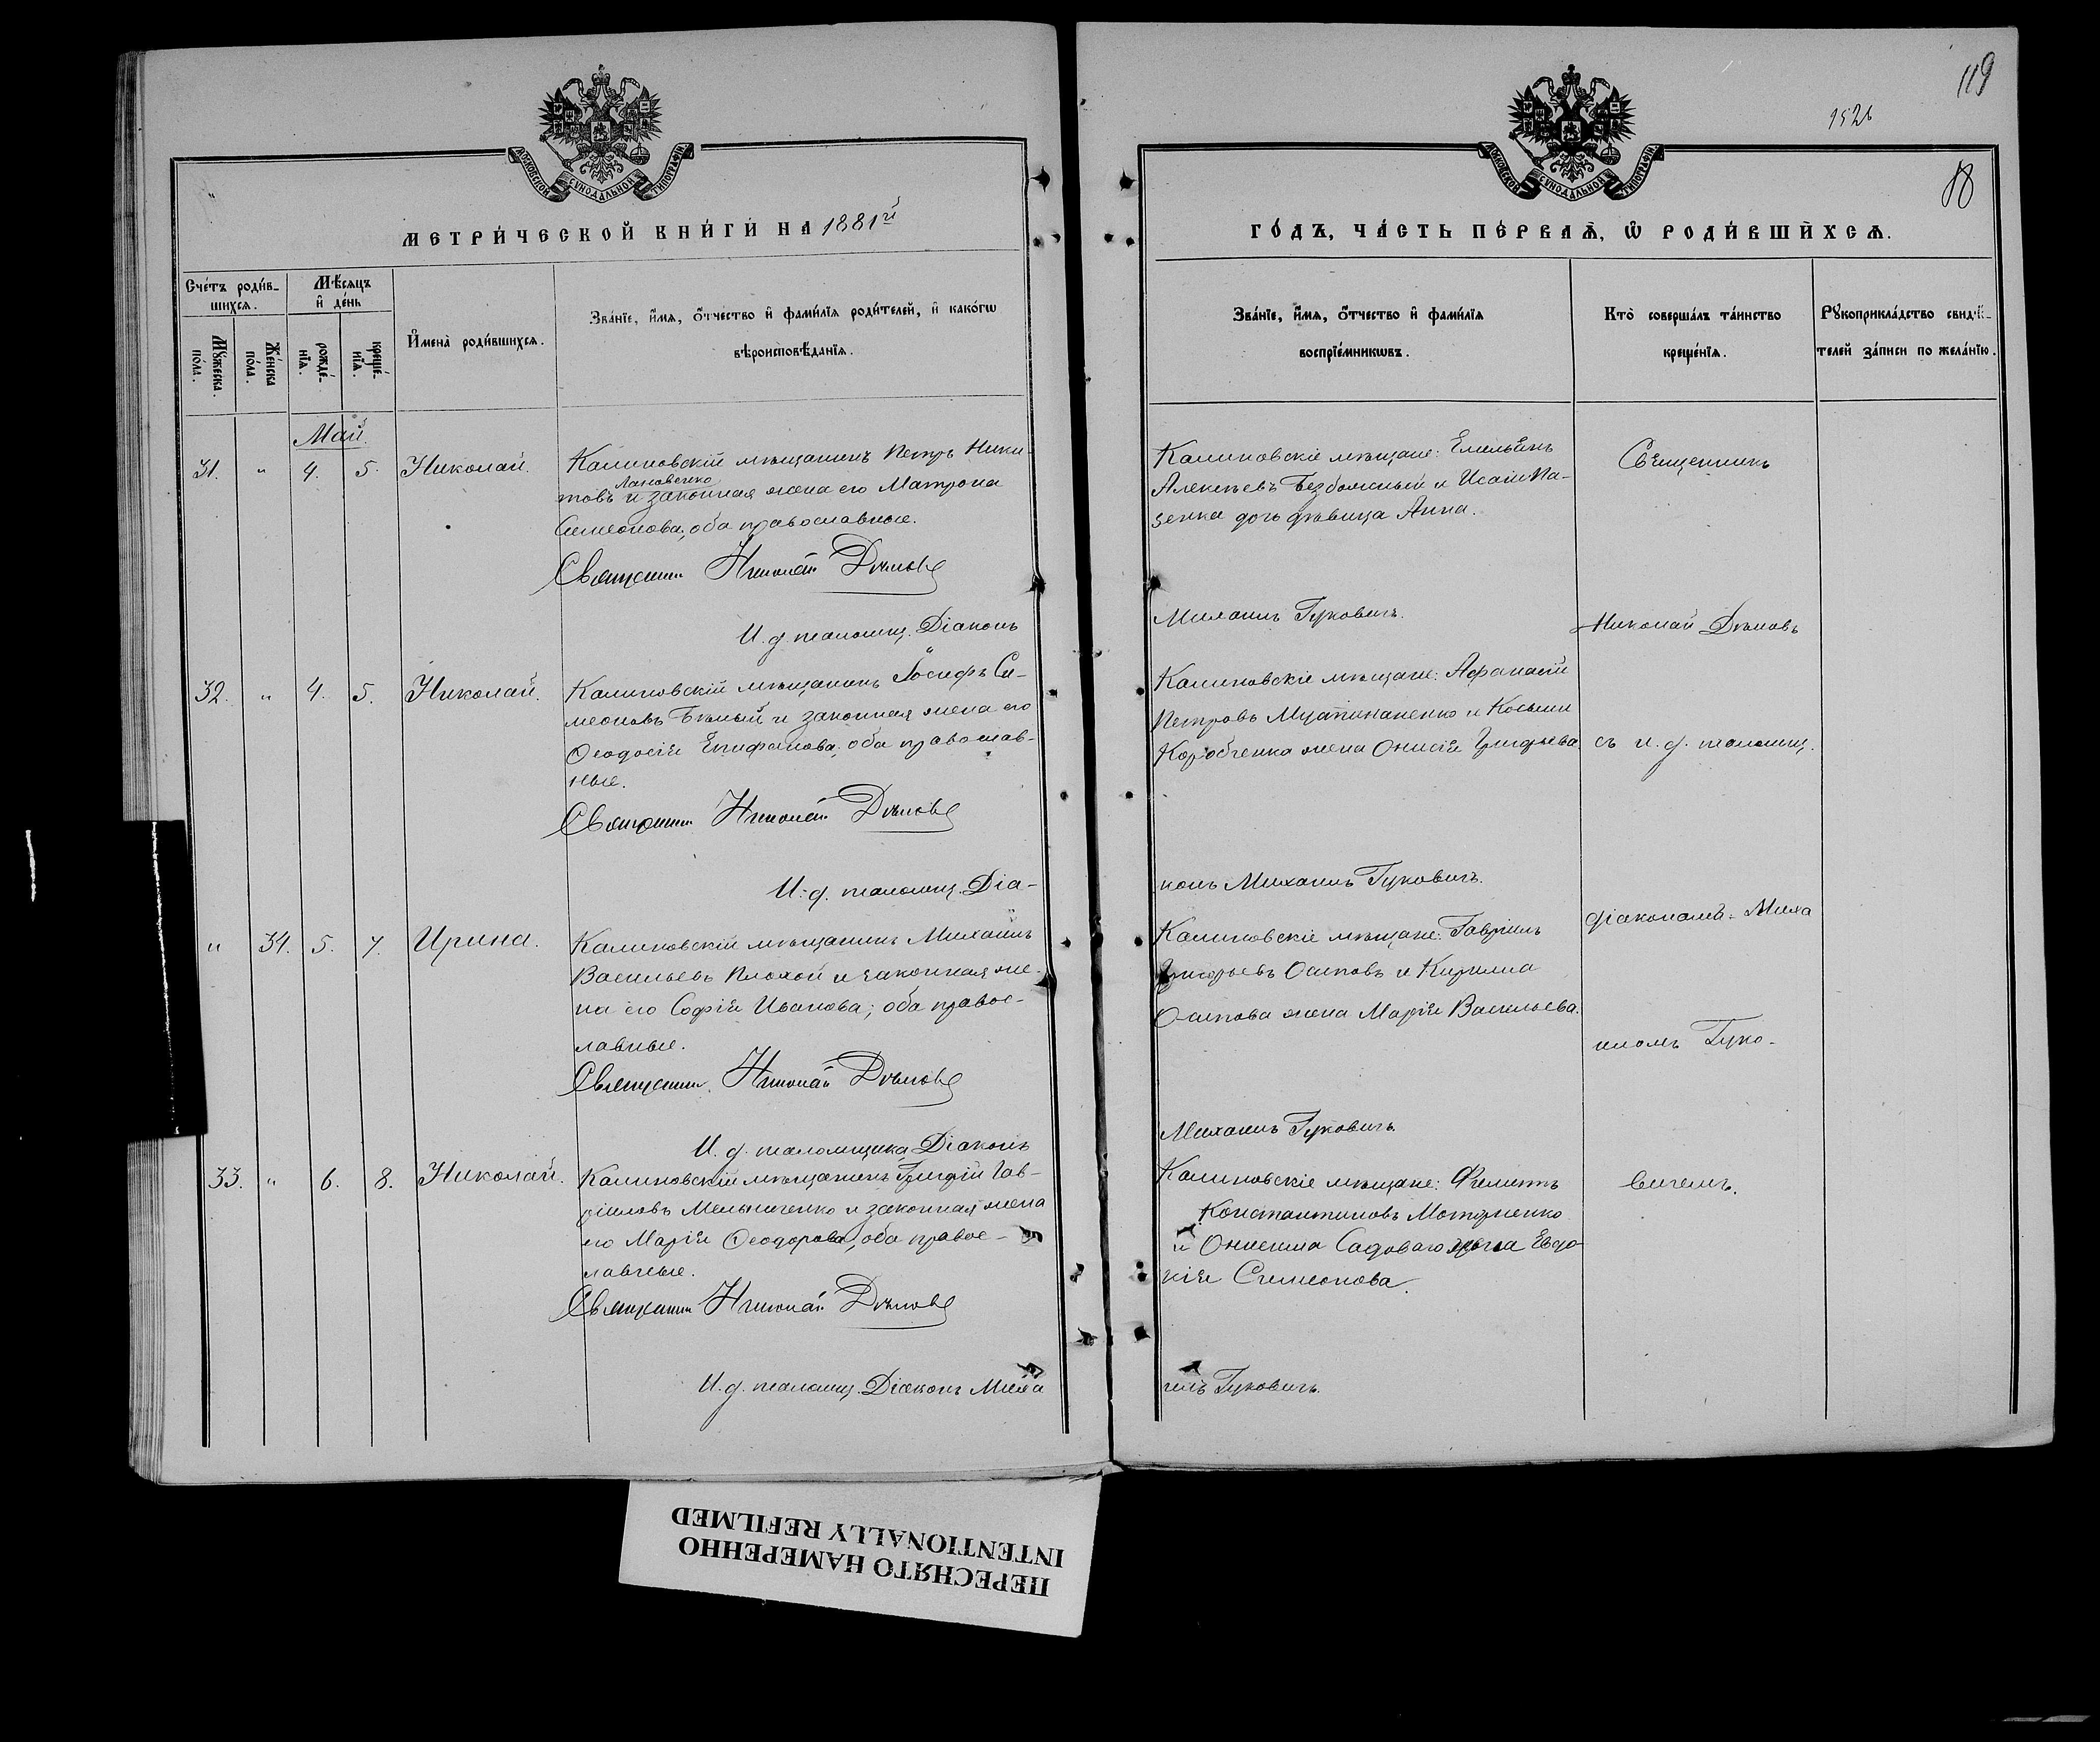 119
1526
18
МОСКОВСКОЙ СѴНОДАЛЬНОЙ ТИПОГРАФІИ
МОСКОВСКОЙ СѴНОДАЛЬНОЙ ТИПОГРАФІИ
МЕТРИ́ЧЕСКОЙ КНИ́ГИ НА 1881й
ГО́ДЪ, ЧА́СТЬ ПЕ́РВАѦ, Ѡ РОДИ́ВШИХСѦ.
Сче́тъ роди́в-
шихся.
Мѣ́сяцъ
и де́нь
Му́жеска по́ла.
Же́нска по́ла.
рожде́-
нїя.
креще́-
нїя.
Имена̀ роди́вшихся.
Зва́нїе, и́мя, о́тчество и фами́лїя роди́телей, и како́гѡ
вѣроисповѣ́данїя.
Зва́нїе, и́мя, о́тчество и фами́лїя
воспрїе́мникѡвъ.
Кто̀ соверша́лъ та́инство
креще́нїя.
Рꙋкоприкла́дство свидѣ́-
телей за́писи по жела́нїю.
Май.
31. " 4. 5. Николай.
Калиновскій мѣщанинъ Петръ Ники-
Лановенко
товъ и законная жена его Матрона
Симеонова, оба православные.
Священник Николай Дѣмовъ
И. д. псаломщ. Діаконъ
Калиновскіе мѣщане: Емельянъ
Алексѣевъ Безбожный и Исаіи Па-
зенка дочь дѣвица Анна.
Михаилъ Гуковичъ.
Священникъ
Николай Дѣмовъ
32. " 4. 5. Николай.
Калиновскій мѣщанинъ Іосифъ Си-
меоновъ Бѣлый и законная жена его
Ѳеодосія Епифанова, оба православ-
ные.
Священник Николай Дѣмовъ
И. д. псаломщ. Діа-
Калиновскіе мѣщане: Афанасій
Петровъ и Косьми
Коробченка жена Онисія Григорьева.
конъ Михаилъ Гуковичъ.
съ и. д. псаломщ.
" 34. 5. 7. Ирина.
Калиновскій мѣщанинъ Михаилъ
Васильевъ Плохой и законная же-
на его Софія Иванова; оба правос-
лавные.
Священник Николай Дѣмовъ
И. д. псаломщика Діаконъ
Калиновскіе мѣщане: Гавріилъ
Григорьевъ Осиповъ и Кирилла
Осипова жена Марія Васильева.
Михаилъ Гуковичъ.
діакономъ Миха
иломъ Гуко-
33. " 6. 8. Николай.
Калиновскій мѣщанинъ Григорій Гав-
ріиловъ Мельниченко и законная жена
его Марія Ѳеодорова, оба правос-
лавные.
Священник Николай Дѣмовъ
И. д. псаломщ. Діаконъ Миха
Калиновскіе мѣщане: Филиппъ
Константиновъ
и Онисима Садоваго жена Евдо-
кія Симеонова.
илъ Гуковичъ.
вичемъ.
ПЕРЕСНЯТО НАМЕРЕННО
INTENTIONALLY REFILMED